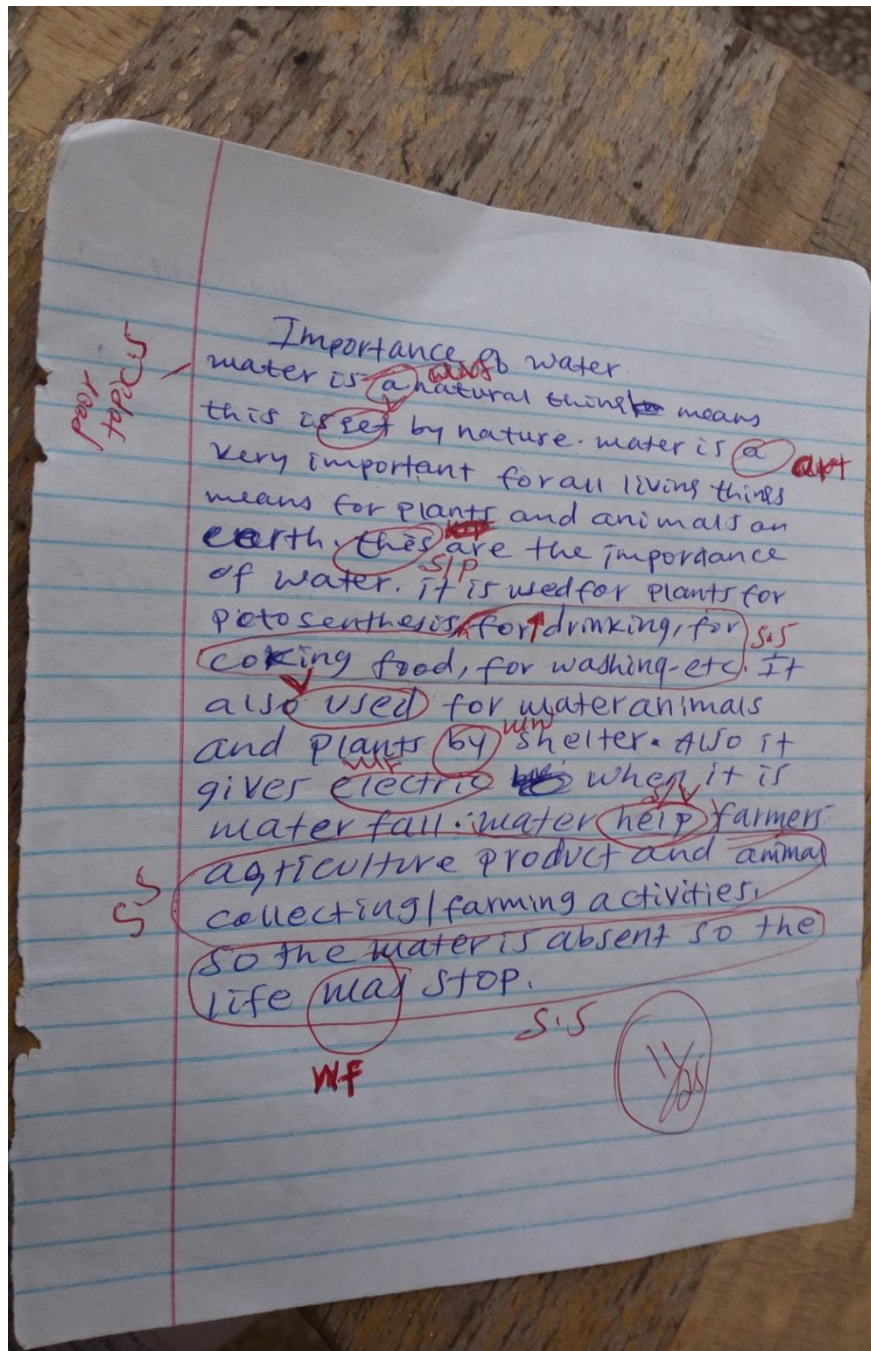 Importance of water.
poor
topic s
water is a natural thing means
this is get by nature. water is a art
very important for all living things
means for plants and animals on
earth. thes are the importance
s/p
of water. it is used for plants for
potosenthesis, for drinking, for s.s
coking food, for washing-etc. It
also used for water animals
and plants by shelter. Also it
ww
wf
gives electric when it is
s/v
water fall. water help farmers
agriculture product and animal
ss
collecting/farming activities.
so the water is absent so the
life was stop.
s.s
wf
11/25